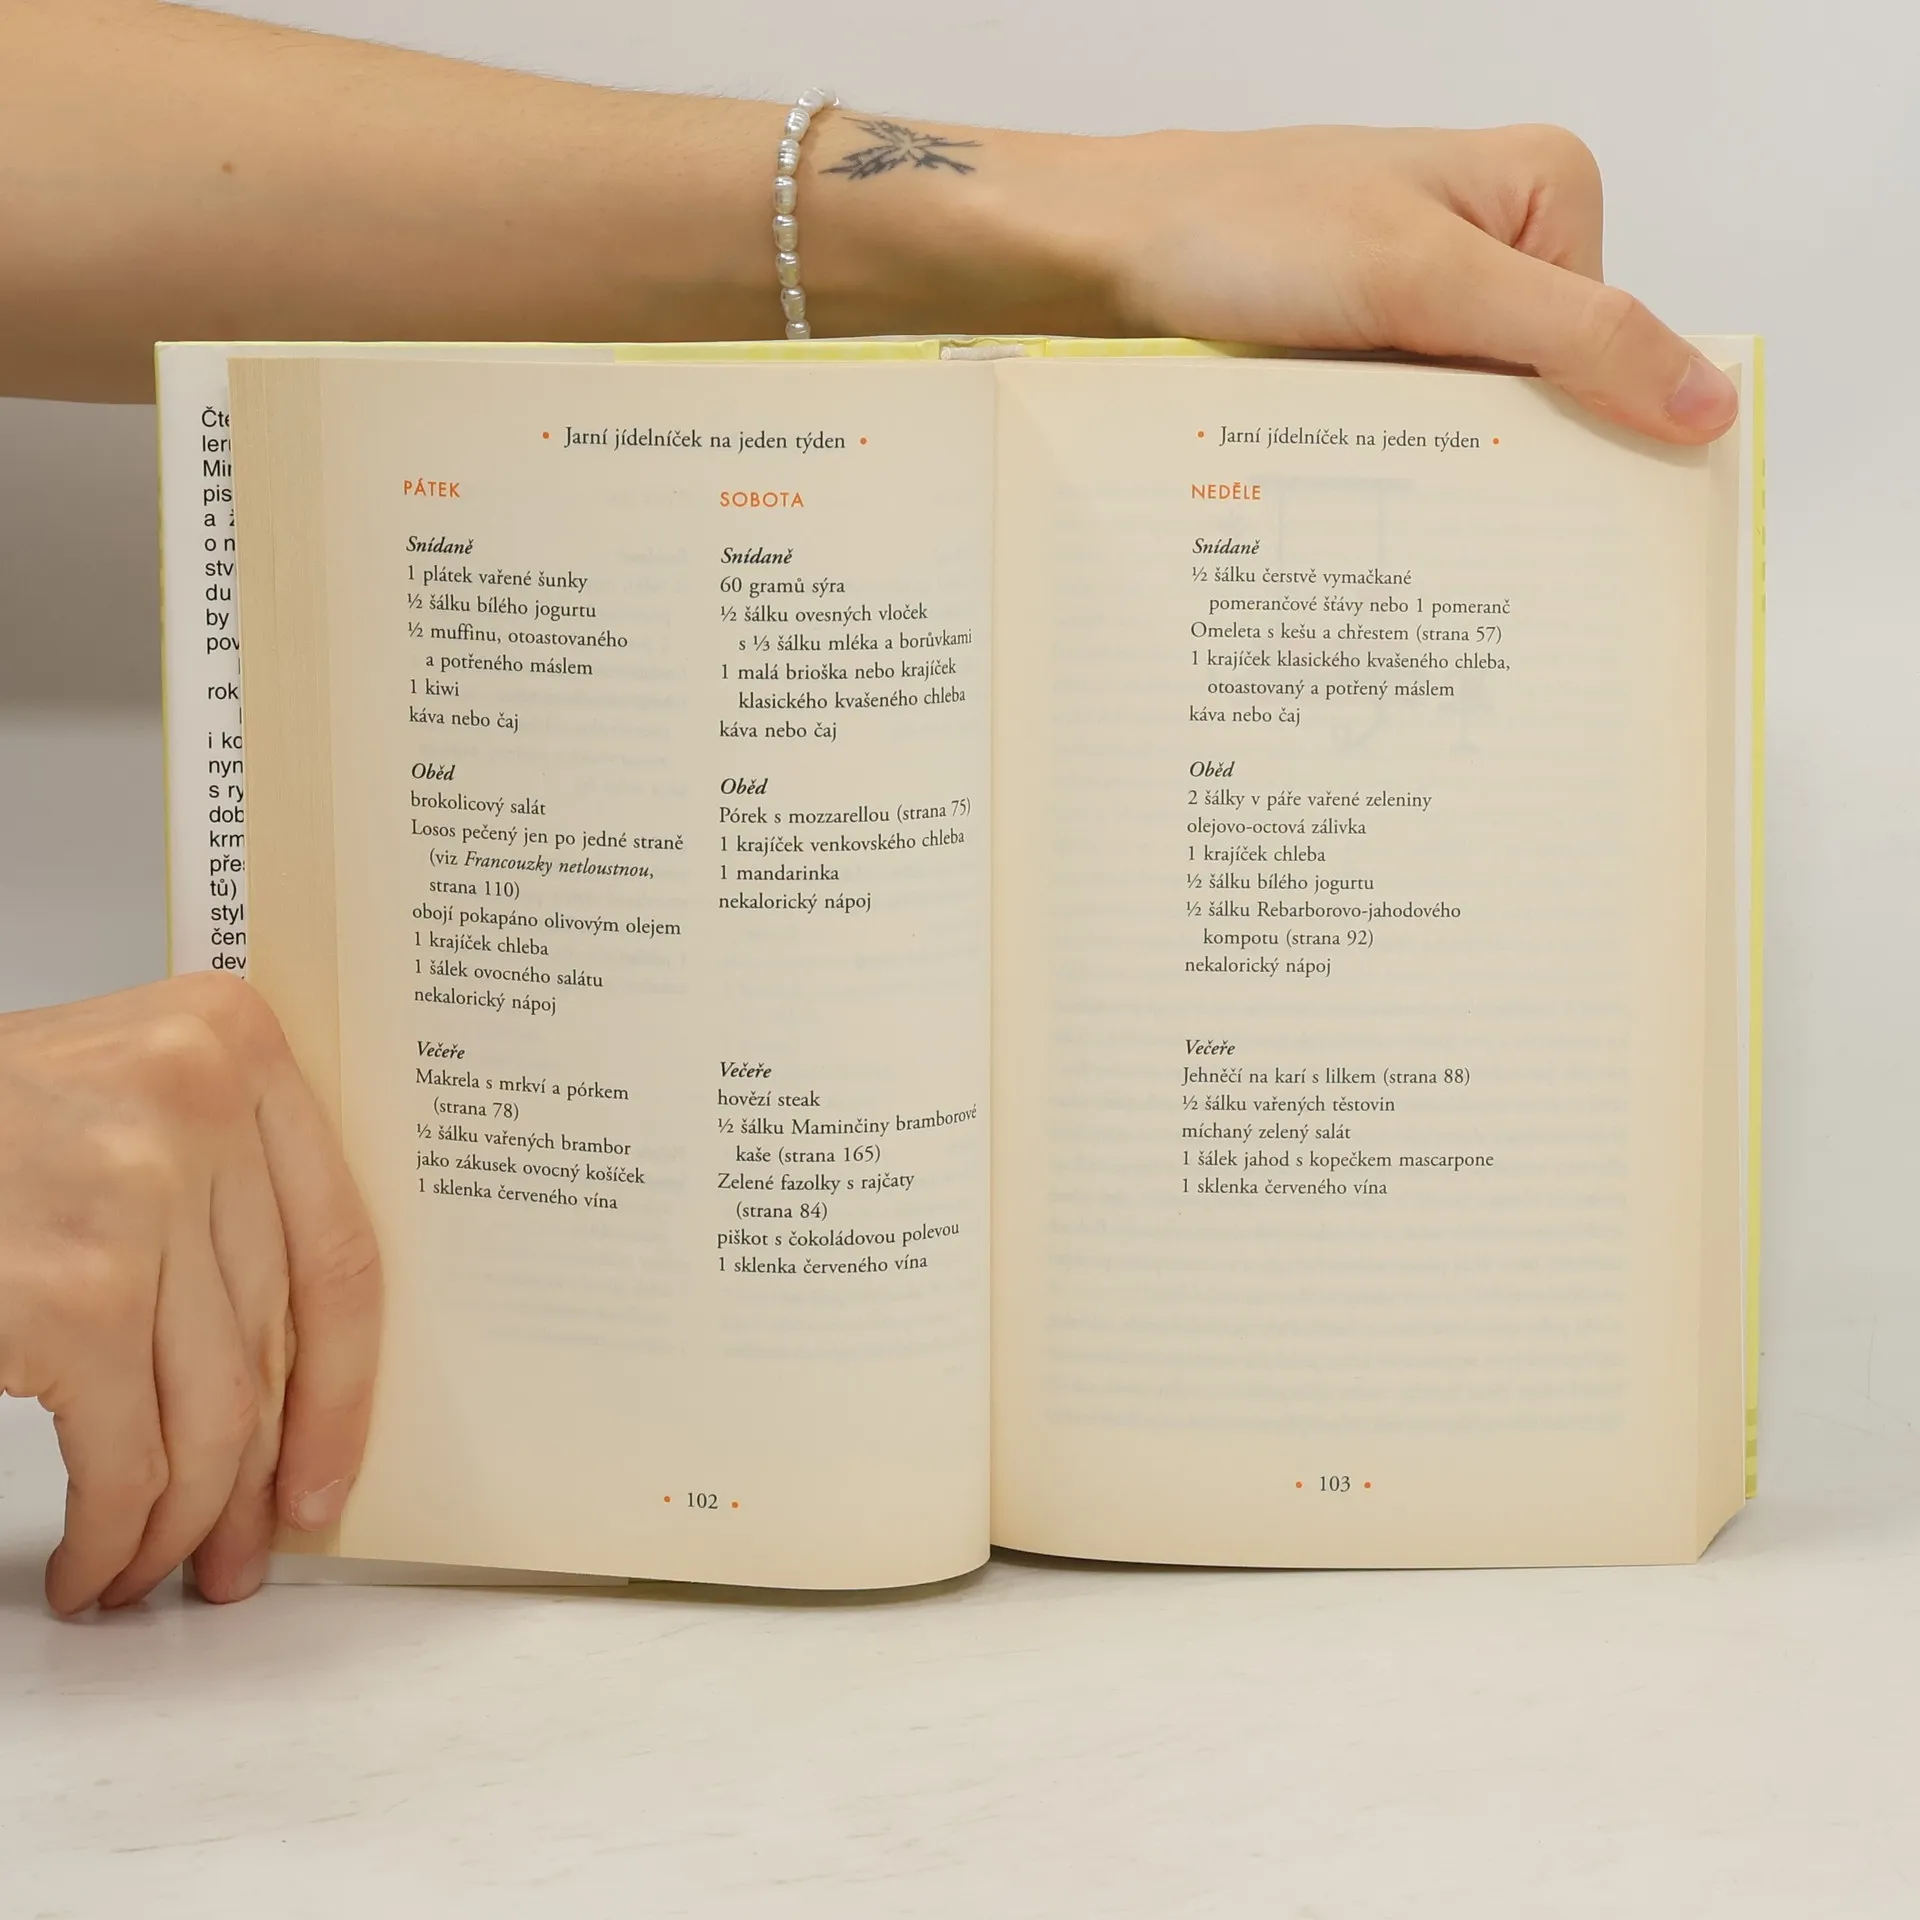 Čte
ler
Mir
pis
a ž
o n
stv
du
by
pov
rok
i ko
nyn
s ry
dob
krm
pře
tů)
styl
čen
dev
• Jarní jídelníček na jeden týden •
PÁTEK
Snídaně
1 plátek vařené šunky
½ šálku bílého jogurtu
½ muffinu, otoastovaného
a potřeného máslem
1 kiwi
káva nebo čaj
Oběd
brokolicový salát
Losos pečený jen po jedné straně
(viz Francouzky netloustnou,
strana 110)
obojí pokapáno olivovým olejem
1 krajíček chleba
1 šálek ovocného salátu
nekalorický nápoj
Večeře
Makrela s mrkví a pórkem
(strana 78)
½ šálku vařených brambor
jako zákusek ovocný košíček
1 sklenka červeného vína
SOBOTA
Snídaně
60 gramů sýra
½ šálku ovesných vloček
s ⅓ šálku mléka a borůvkami
1 malá brioška nebo krajíček
klasického kvašeného chleba
káva nebo čaj
Oběd
Pórek s mozzarellou (strana 75)
1 krajíček venkovského chleba
1 mandarinka
nekalorický nápoj
Večeře
hovězí steak
½ šálku Maminčiny bramborové
kaše (strana 165)
Zelené fazolky s rajčaty
(strana 84)
piškot s čokoládovou polevou
1 sklenka červeného vína
• 102 •
• Jarní jídelníček na jeden týden •
NEDĚLE
Snídaně
½ šálku čerstvě vymačkané
pomerančové šťávy nebo 1 pomeranč
Omeleta s kešu a chřestem (strana 57)
1 krajíček klasického kvašeného chleba,
otoastovaný a potřený máslem
káva nebo čaj
Oběd
2 šálky v páře vařené zeleniny
olejovo-octová zálivka
1 krajíček chleba
½ šálku bílého jogurtu
½ šálku Rebarborovo-jahodového
kompotu (strana 92)
nekalorický nápoj
Večeře
Jehněčí na karí s lilkem (strana 88)
½ šálku vařených těstovin
míchaný zelený salát
1 šálek jahod s kopečkem mascarpone
1 sklenka červeného vína
• 103 •